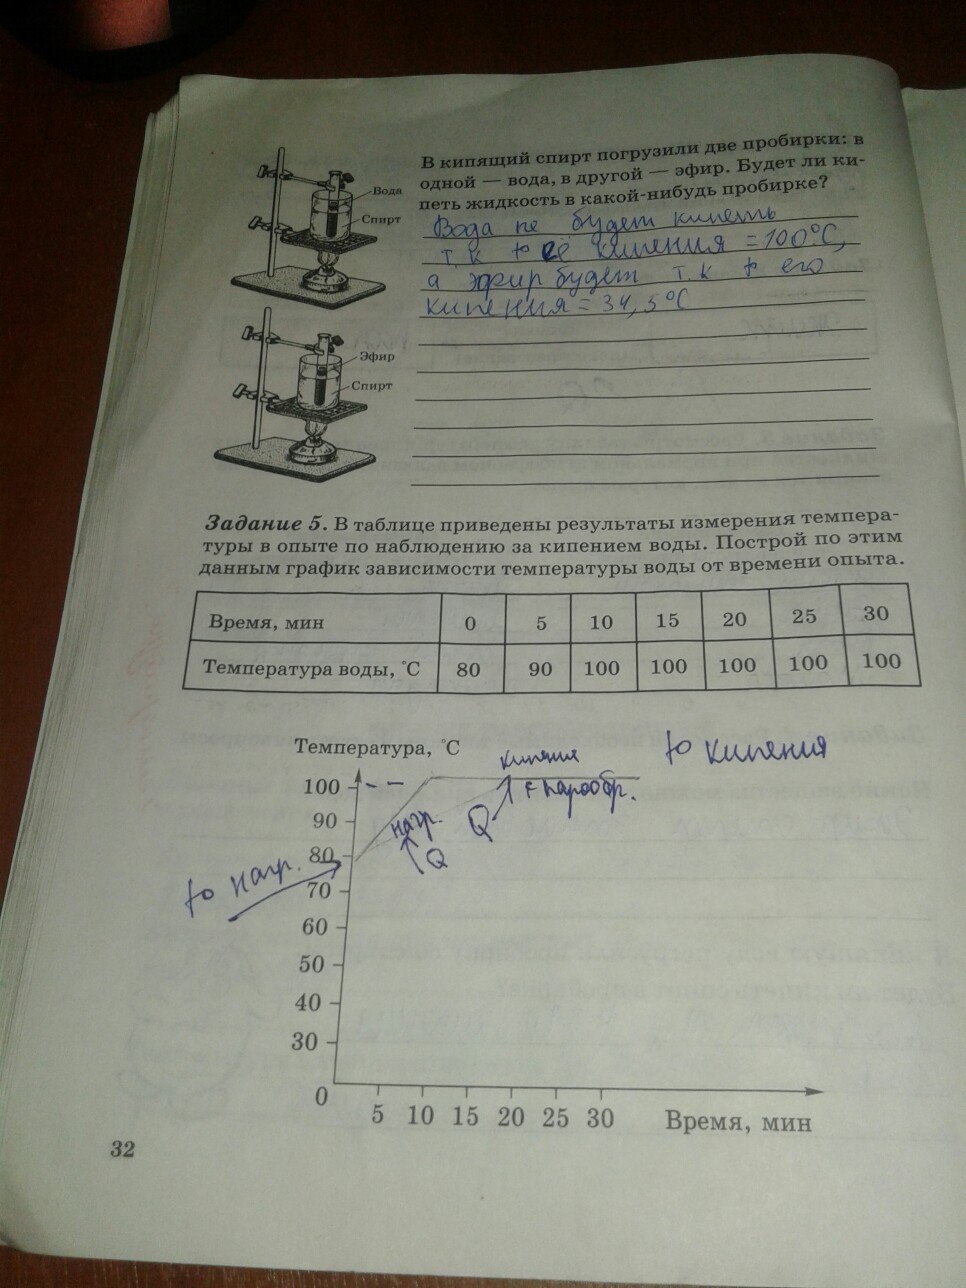 В кипящий спирт погрузили две пробирки: в
одной — вода, в другой — эфир. Будет ли ки-
петь жидкость в какой-нибудь пробирке?
Вода
Спирт
Вода не будет кипеть
т.к to её кипения = 100°C,
а эфир будет т к to его
кипения = 34,5°C
Эфир
Спирт
Задание 5. В таблице приведены результаты измерения темпера-
туры в опыте по наблюдению за кипением воды. Построй по этим
данным график зависимости температуры воды от времени опыта.
Время, мин 0 5 10 15 20 25 30
Температура воды, °C 80 90 100 100 100 100 100
Температура, °C
кипения
to кипения
100
парообр.
90
нагр.
Q
80
Q
to нагр.
70
60
50
40
30
0
5 10 15 20 25 30 Время, мин
32